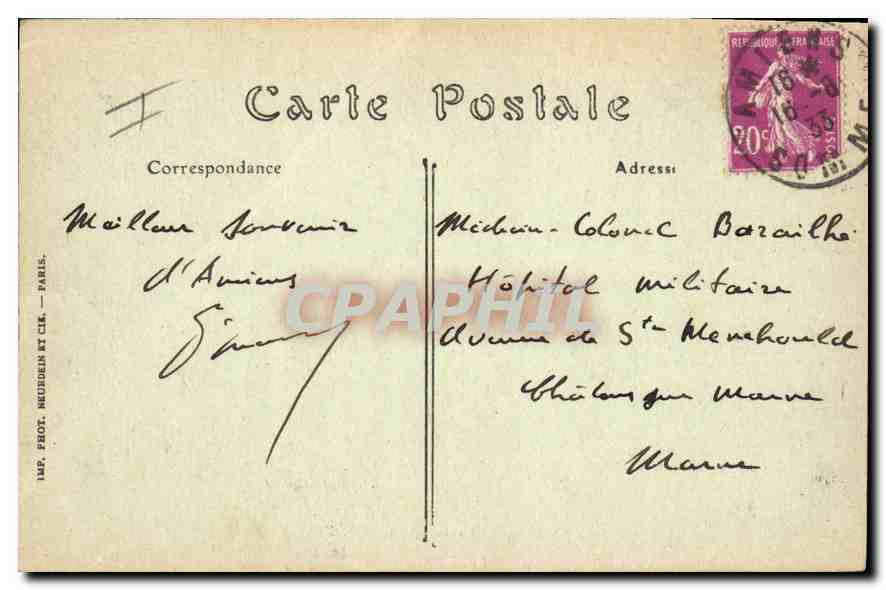 Carte Postale
Correspondance
Adresse
REPUBLIQUE FRANÇAISE
20c
POSTES
AMIENS
16
16 - 8
33
SOMME
Meilleur souvenir
d'Amiens
Médecin-Colonel Barailhé
Hôpital Militaire
Avenue de Ste Menehould
Châlons sur Marne
Marne
IMP. PHOT. NEURDEIN ET CIE. — PARIS.
CPAPHIL